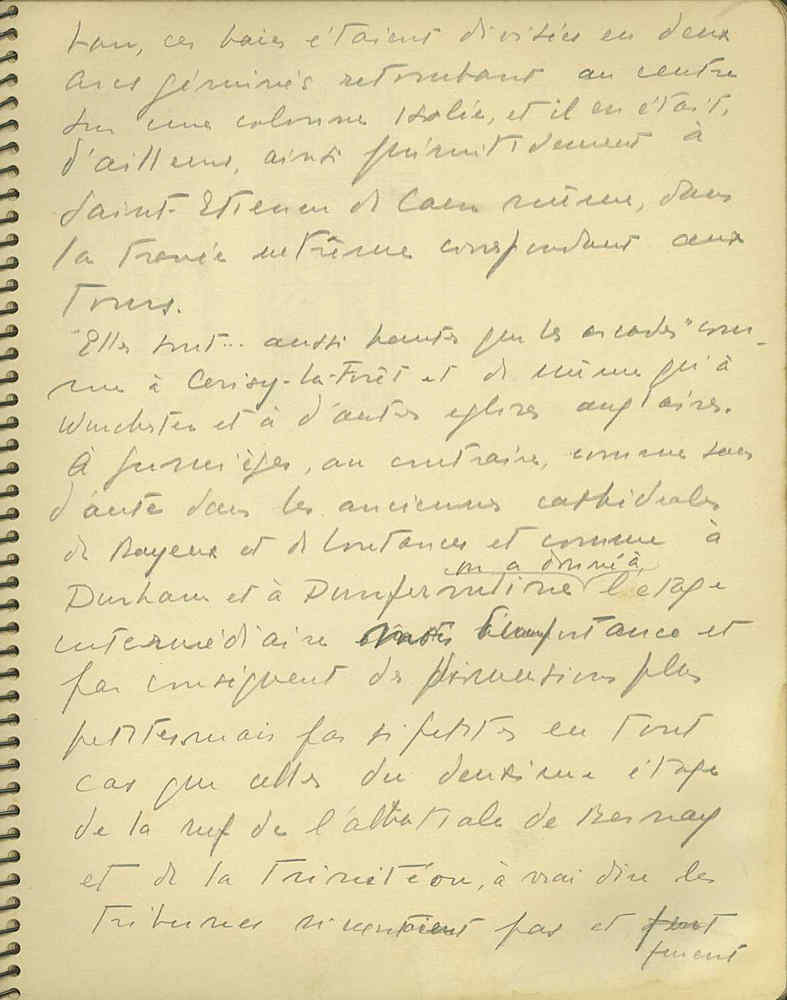 ton, ces baies étaient divisées en deux
arcs géminés retombant au centre
sur une colonne isolée, et il en était,
d'ailleurs, ainsi primitivement à
Saint-Etienne de Caen même, dans
la travée extrême correspondant aux
tours.
"Elles sont... aussi hautes que les arcades" com-
me à Cerisy-la-Forêt et de même qu'à
Winchester et à d'autres eglises anglaises.
A Jumièges, au contraire, comme sans
doute dans les anciennes cathédrales
de Bayeux et de Coutances et comme à
on a donné à
Durham et à Dunfermline l'etage
intermédiaire moins d'importance et
par conséquent des dimensions plus
petites mais pas si petites en tout
cas que celles du deuxième étage
de la nef de l'abbatiale de Bernay
et de la Trinité où, à vrai dire les
tribunes n'existent pas et
furent